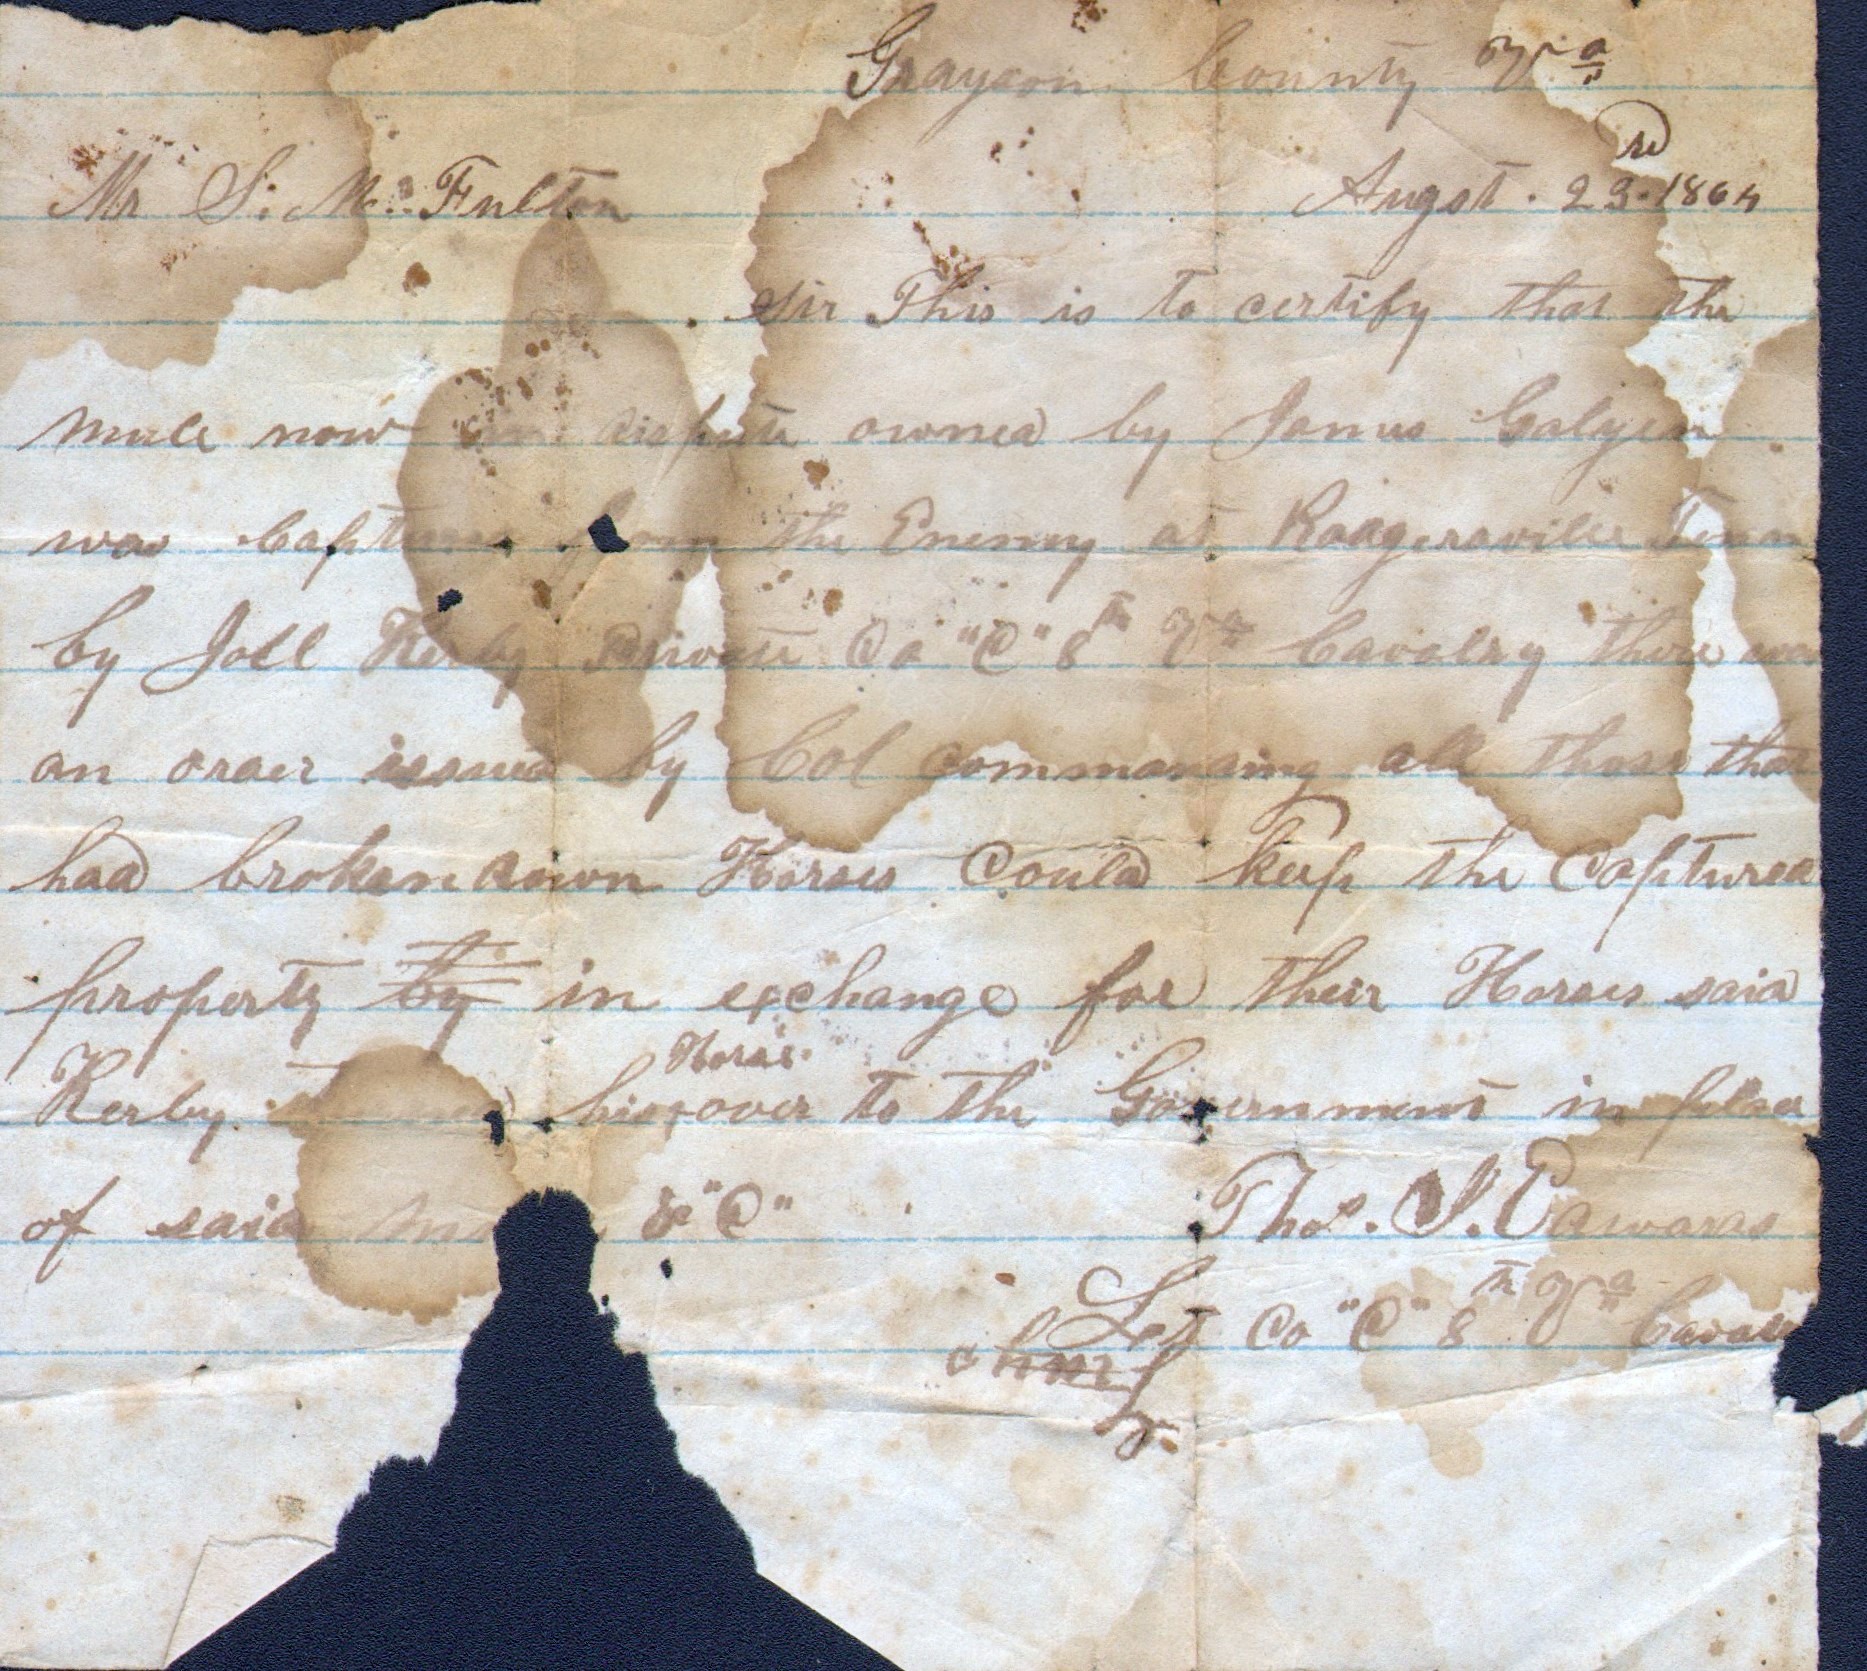 Grayson County Va
Mr S. M. Fulton Augst. 23rd 1864
Sir This is to certify that the
mule now in dispute owned by James Galyen
was Captured from the Enemy at Roagersville Tenn
by Joel Kerby Private Co "C" 8th Va Cavalry there was
an order issued by Col commanding all those that
had broken down Horses Could keep the Captured
property by in exchange for their Horses said
Horse
Kerby turned his over to the Government in place
of said &"C" Thos. S. Edwards
Lt Co "C" 8th Va Cavalry